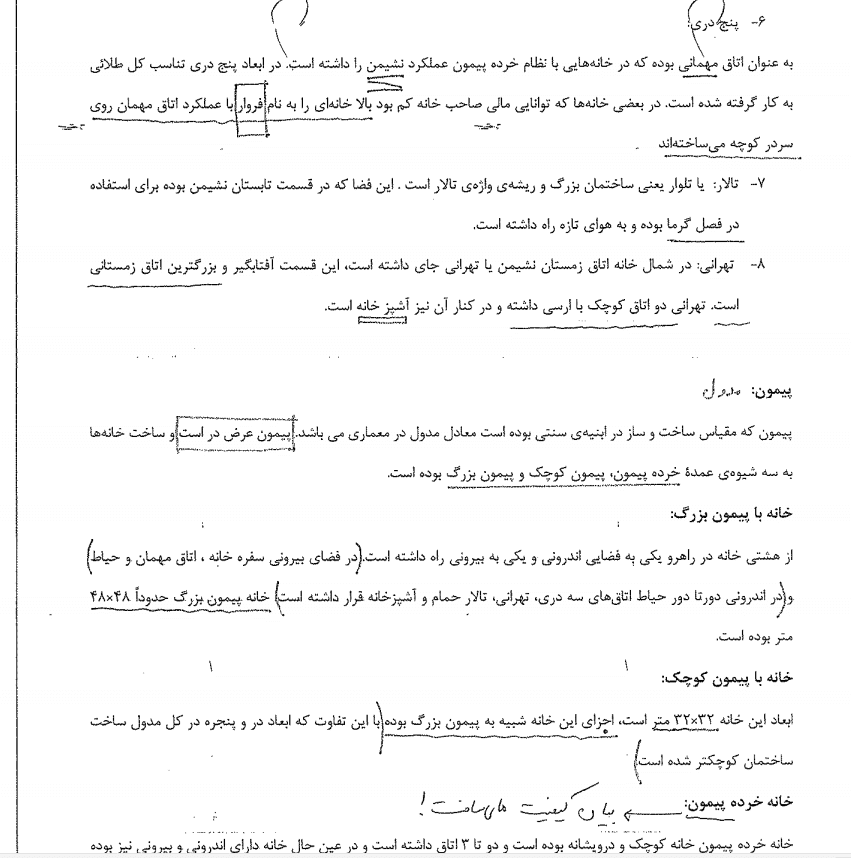 ۶- پنج دری:
به عنوان اتاق مهمانی بوده که در خانه‌هایی با نظام خرده پیمون عملکرد نشیمن را داشته است. در ابعاد پنج دری تناسب کل طلائی
به کار گرفته شده است. در بعضی خانه‌ها که توانایی مالی صاحب خانه کم بود بالا خانه‌ای را به نام فروار با عملکرد اتاق مهمان روی
سردر کوچه می‌ساخته‌اند
۷- تالار: یا تلوار یعنی ساختمان بزرگ و ریشه‌ی واژه‌ی تالار است . این فضا که در قسمت تابستان نشیمن بوده برای استفاده
در فصل گرما بوده و به هوای تازه راه داشته است.
۸- تهرانی: در شمال خانه اتاق زمستان نشیمن یا تهرانی جای داشته است، این قسمت آفتابگیر و بزرگترین اتاق زمستانی
است. تهرانی دو اتاق کوچک با ارسی داشته و در کنار آن نیز آشپز خانه است.
پیمون: مدول
پیمون که مقیاس ساخت و ساز در ابنیه‌ی سنتی بوده است معادل مدول در معماری می باشد. پیمون عرض در است و ساخت خانه‌ها
به سه شیوه‌ی عمدۀ خرده پیمون، پیمون کوچک و پیمون بزرگ بوده است.
خانه با پیمون بزرگ:
از هشتی خانه در راهرو یکی به فضایی اندرونی و یکی به بیرونی راه داشته است. (در فضای بیرونی سفره خانه ، اتاق مهمان و حیاط)
و (در اندرونی دورتا دور حیاط اتاق‌های سه دری، تهرانی، تالار حمام و آشپزخانه قرار داشته است) خانه پیمون بزرگ حدوداً ۴۸×۴۸
متر بوده است.
خانه با پیمون کوچک:
ابعاد این خانه ۳۲×۳۲ متر است، اجزای این خانه شبیه به پیمون بزرگ بوده (با این تفاوت که ابعاد در و پنجره در کل مدول ساخت
ساختمان کوچکتر شده است)
خانه خرده پیمون: بیان کیفیت های ساخت !
خانه خرده پیمون خانه کوچک و درویشانه بوده است و دو تا ۳ اتاق داشته است و در عین حال خانه دارای اندرونی و بیرونی نیز بوده